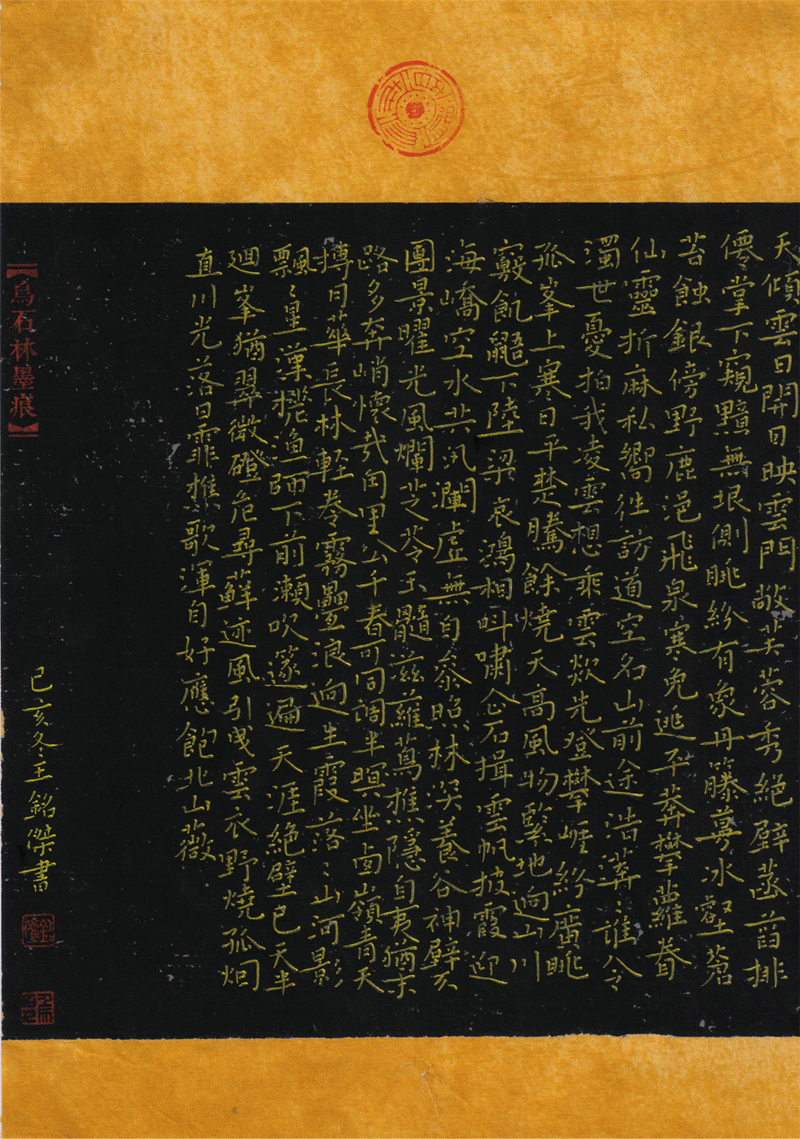 天傾雲日開日映雲門敞芙蓉秀絕壁菡萏排
僊掌下窺黯無垠側眺紛有象丹籐蔓冰壑蒼
苔蝕銀傍野鹿浥飛泉寒兔逃平莽攀蘿眷
仙靈折麻私嚮往訪道空名山前途浩漭〻誰令
濁世憂拍我凌雲想乘雲欻先登攀崕紛廣眺
孤峯上寒日平楚騰餘燒天高風物緊地迥山川
竅飢鼯下陸梁哀鴻相叫嘯企石揖雲帆披霞迎
海嶠空水共汎瀾虛無自叅照林深養谷神壁天
團景曜光風爛芝苓玉髓滋蘿蔦樵隱自夷猶榮
路多奔峭懷哉甪里公千春可同調半暝坐鹵嶺青天
摶日華長林輕卷霧疊浪迥生霞落〻山河影
飄〻星漢槎漁師下前瀨吹篴遍天涯絕壁已天半
迴峯猶翠微磴危尋蘚迹風引曳雲衣野燒孤烟
直川光落日霏樵歌渾自好應飽北山薇
己亥冬王銘榮書
【烏石林墨痕】